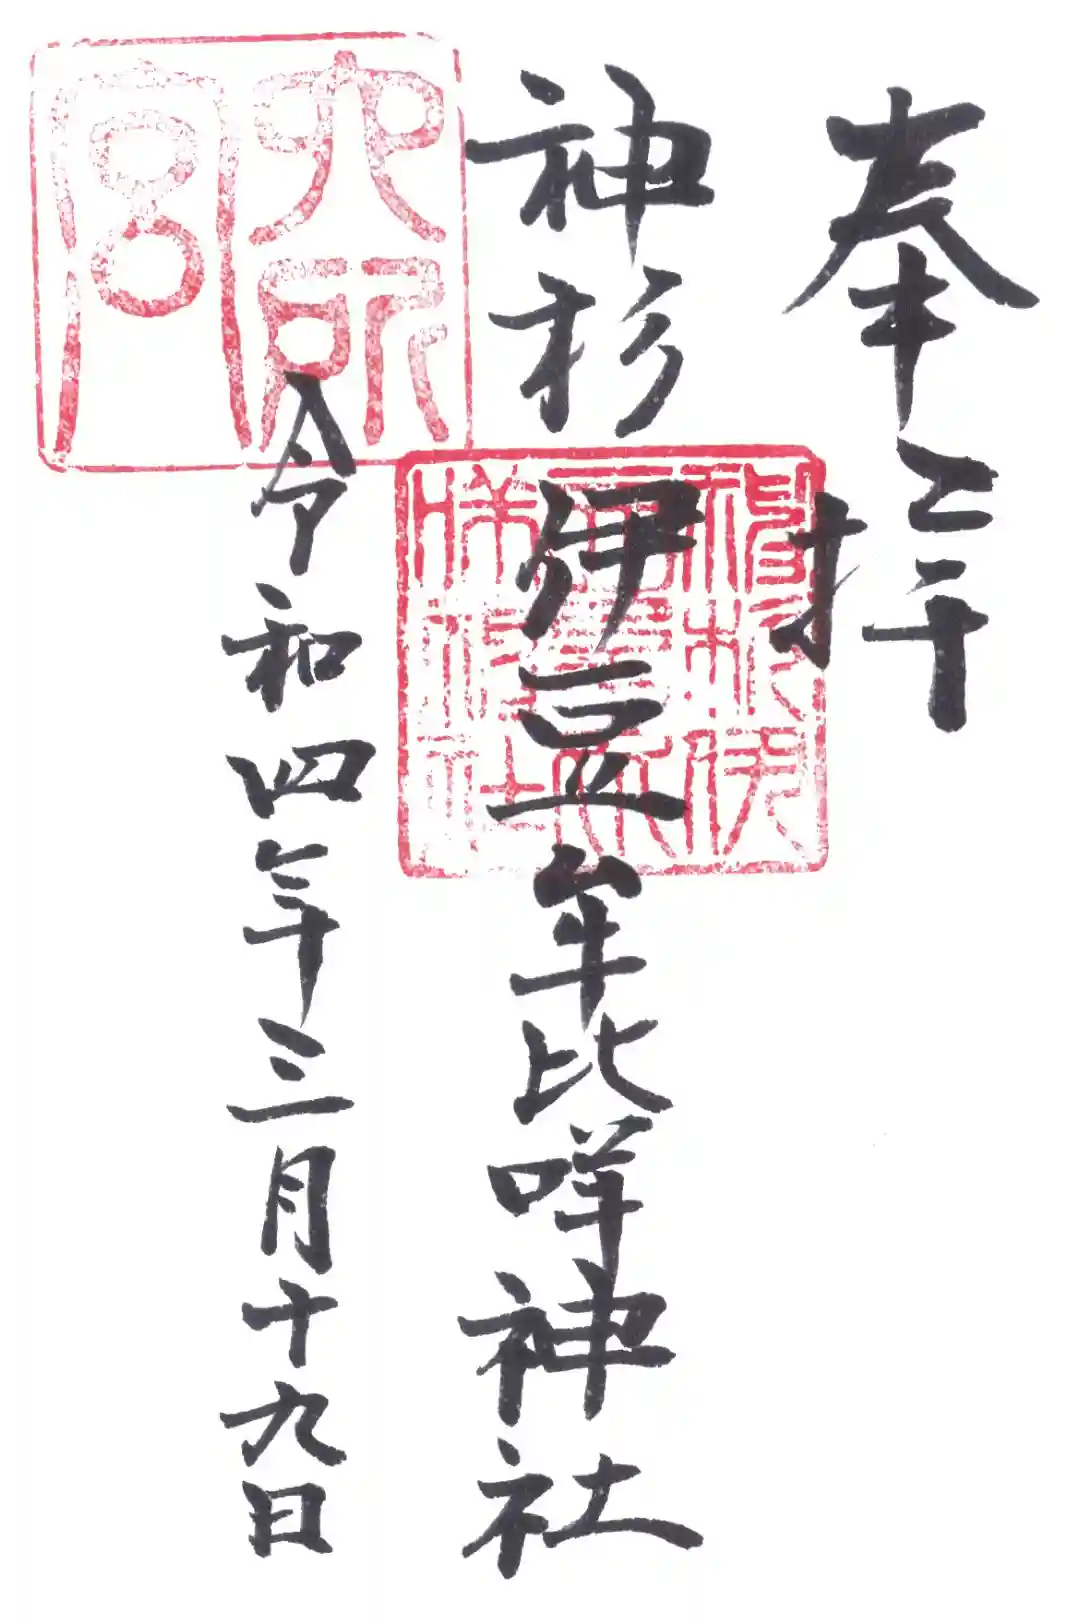 奉拝
神杉伊豆牟比咩神社
令和四年三月十九日
六所宮